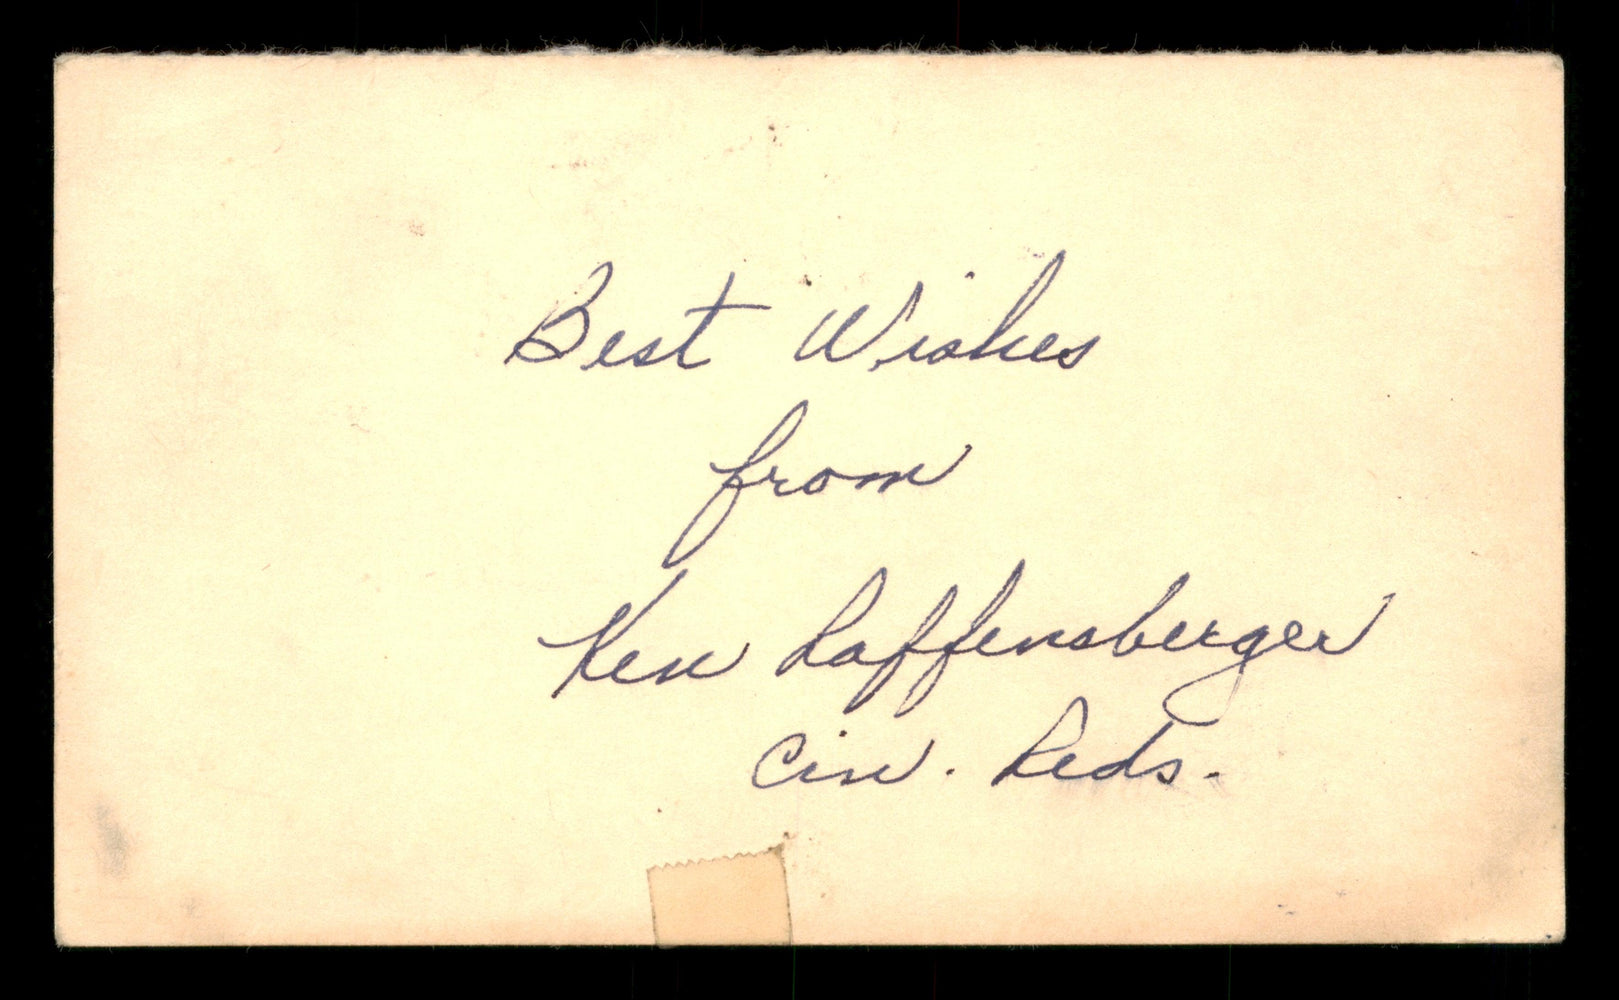 Best Wishes
from
Ken Raffensberger
Cin. Reds.